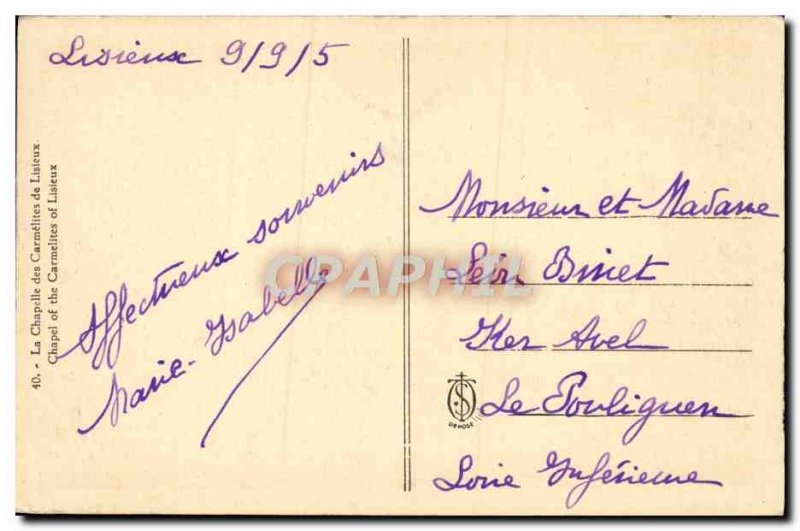 Lisieux 9/9/5
Affectueux souvenirs
Marie-Isabelle
40. - La Chapelle des Carmélites de Lisieux
Chapel of the Carmelites of Lisieux
Monsieur et Madame
Binet
Ker Avel
Le Pouliguen
Loire Inférieure
DEPOSE
CPAPHIL